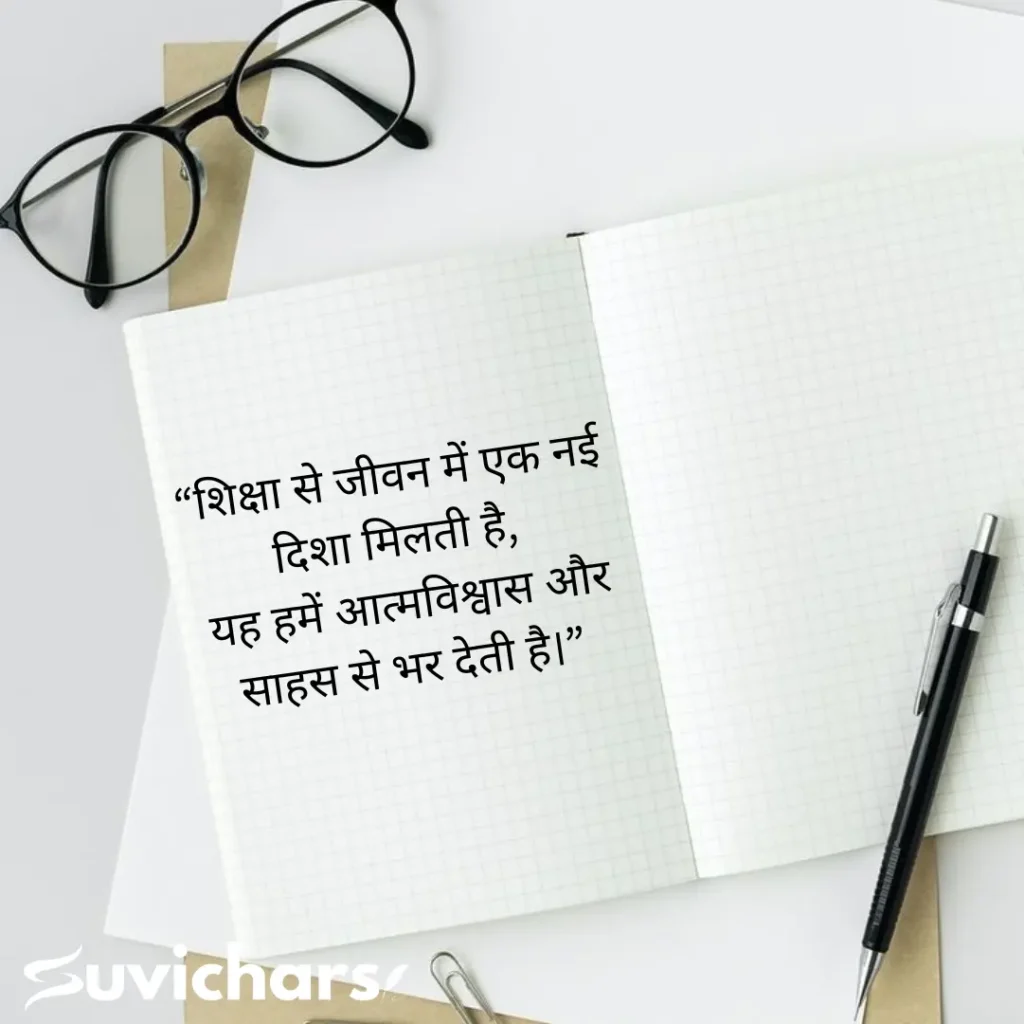 “शिक्षा से जीवन में एक नई
दिशा मिलती है,
यह हमें आत्मविश्वास और
साहस से भर देती है।”
Suvichars